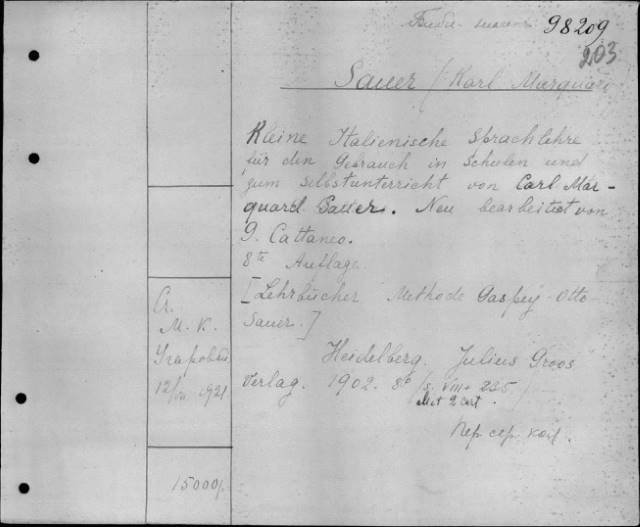 98209
203
Sauer (Karl Marquard
Kleine Italienische Sprachlehre
für den Gebrauch in Schulen und
zum Selbstunterricht von Carl Mar-
quard Sauer. Neu bearbeitet von
G. Cattaneo.
8te Auflage
[Lehrbücher Methode Gaspey-Otto
Sauer.]
Heidelberg. Julius Groos
Verlag. 1902. 8° (S. VIII + 235)
Mit 2 cart.
Пер. сер. кол.
А.
М. К.
1921
15000р.